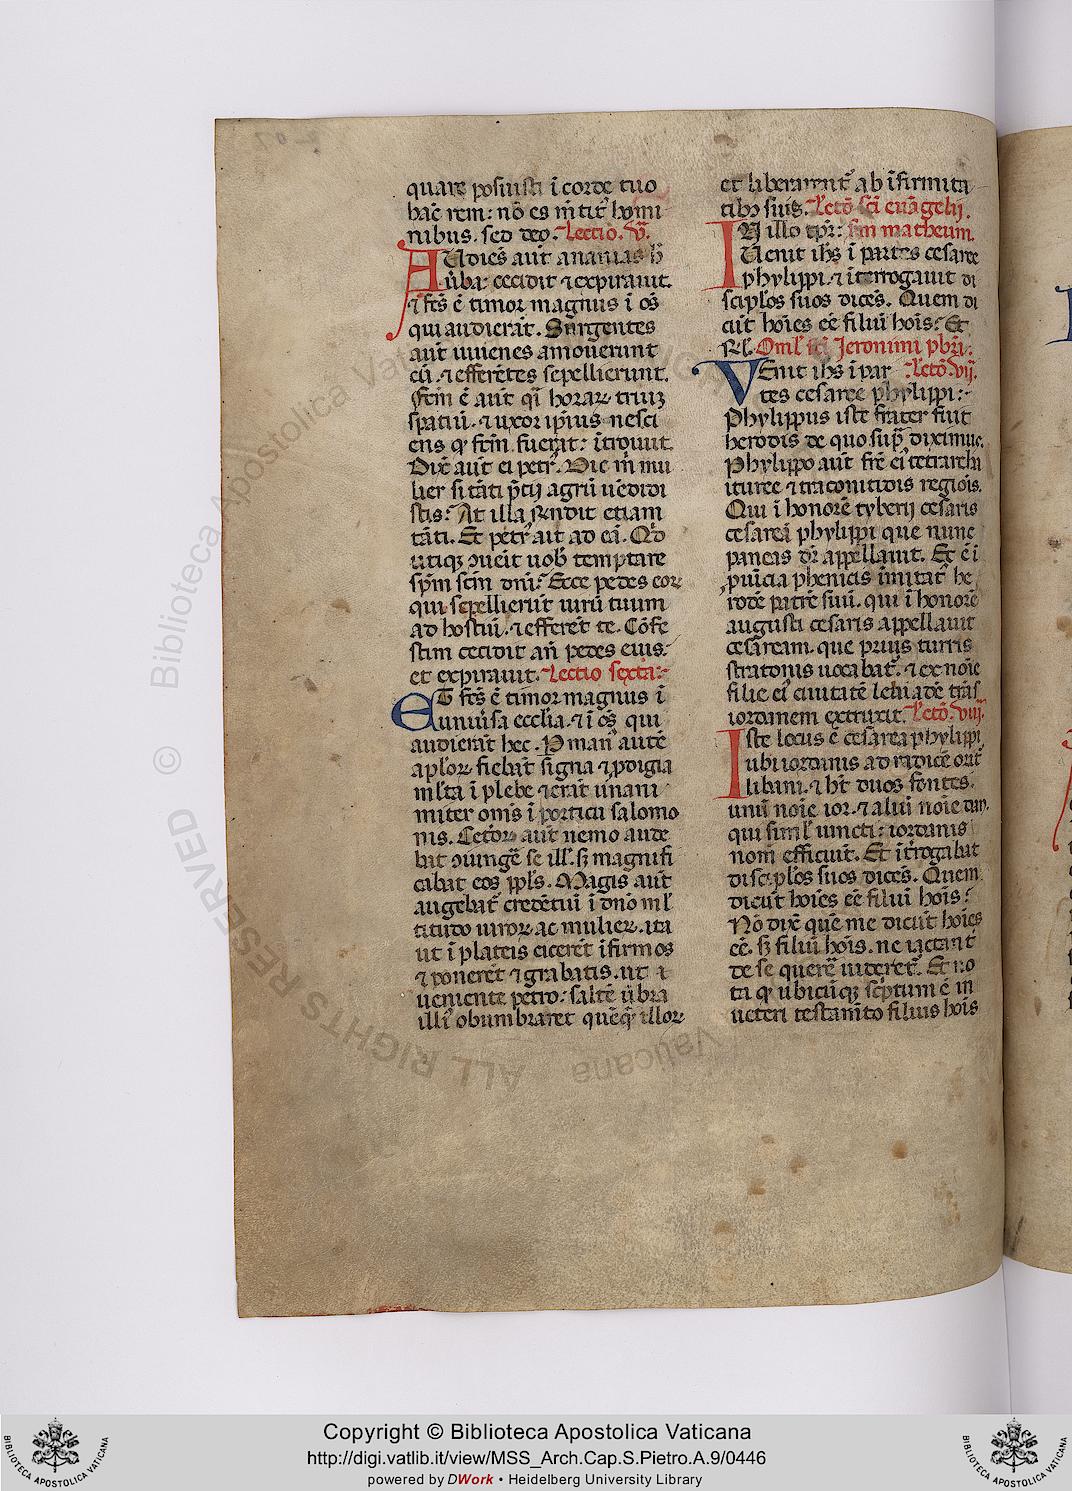 quare posuisti ī corde tuo
hāc rem: nō es m̄titꝰ homi
nibus. sed deo. Lectio. v̄.
Audies aūt ananias h̄
ūba: cecidit ⁊ expirauit.
⁊ fc̄s ē timor magnus ī oēs
qui audierāt. Surgentes
aūt iuuenes amouerunt
eū. ⁊ efferētes sepellierunt.
fcm̄ ē aūt q̄i horaꝝ triuꝫ
spatiū. ⁊ uxor ip̄ius nesci
ens qꝫ fcm̄ fuerat: ītroiuit.
Dix̄ aūt ei petrꝰ. Dic m̄ mu
lier si tāti p̄cij agrū uēdidi
stis? At illa rn̄dit etiam
tāti. Et petrꝰ ait ad eā. Qd̄
utiqꝫ ꝯuēit uob̄ temptare
sp̄m sc̄m dn̄i? Ecce pedes eoꝝ
qui sepellierūt uirū tuum
ad hostiū. ⁊ efferēt te. Cōfe
stim cecidit an̄ pedes eius:
et expirauit. Lectio sexta:
ET fc̄s ē timor magnus ī
uniuˀsa ecc̄lia. ⁊ ī oēs qui
audierāt hec. P manꝰ autē
apl̄oꝝ fiebāt signa ⁊ ꝓdigia
ml̄ta ī plebe ⁊ erāt unani
miter om̄s ī porticu salomo
nis. Cetoꝝ aūt nemo aude
bat ꝯiungē se ill̄. sꝫ magnifi
cabat eos ppl̄s. Magis aūt
augebat̄ credētiū ī dn̄o ml̄
titudo uiroꝝ ac mulieꝝ. ita
ut ī plateis eicerēt īfirmos
⁊ ponerēt ⁊ grabatis. ut
ueniente petro: saltē ūbra
illiꝰ obumbraret quēqꝫ illoꝝ
et liberarent̄ ab īfirmita
tibꝫ suis. Lc̄to sc̄i euāgelij.
IN illo tpr̄: sm̄ matheum.
Uenit ih̄s ī partes cesaree
phylippi. ⁊ īterrogauit di
scipl̄os suos dicēs. Quem di
cūt hoīes eē filiū hoīs? Et
rl̄. Oml̄ sc̄i Jeronimi pbr̄i.
VEnit ih̄s ī par Lc̄to. vij.
tes cesaree phylippi:
Phylippus iste frater fuit
herodis de quo supᵃ diximus.
Phylippo aūt frē eiꝰ tetrarchi
ituree ⁊ traconitidis regiōis.
Qui ī honorē tyberij cesaris
cesareā phylippi que nunc
paneas dr̄ appellauit. Et ē ī
ꝓuīcia phenicis imitatꝰ he
rodē patrē suū. qui ī honorē
augusti cesaris appellauit
cesaream. que prius turris
stratonis uocabat̄. ⁊ ex noīe
filie eiꝰ ciuitatē lebiadē trās
iordanem extruxit. Lc̄to. viij.
Iste locus ē cesarea phylippi
ubi iordanis ad radicē orit̄
libani. ⁊ h̄t duos fontes.
unū noīe ior. ⁊ aliū noīe dan.
qui siml̄ iuncti: iordanis
nom̄ efficiūt. Et īt̄rogabat
discipl̄os suos dicēs. Quem
dicūt hoīes eē filiū hoīs?
Nō dix̄ quē me dicūt hoīes
eē. sꝫ filiū hoīs. ne iactant̄
de se querē uideret̄. Et no
ta qꝫ ubicūqꝫ sc̄ptum ē in
ueteri testam̄to filius hoīs
© Biblioteca Apostolica Vaticana
ALL RIGHTS RESERVED
Copyright © Biblioteca Apostolica Vaticana
http://digi.vatlib.it/view/MSS_Arch.Cap.S.Pietro.A.9/0446
powered by DWork • Heidelberg University Library
BIBLIOTECA APOSTOLICA VATICANA
BIBLIOTECA APOSTOLICA VATICANA